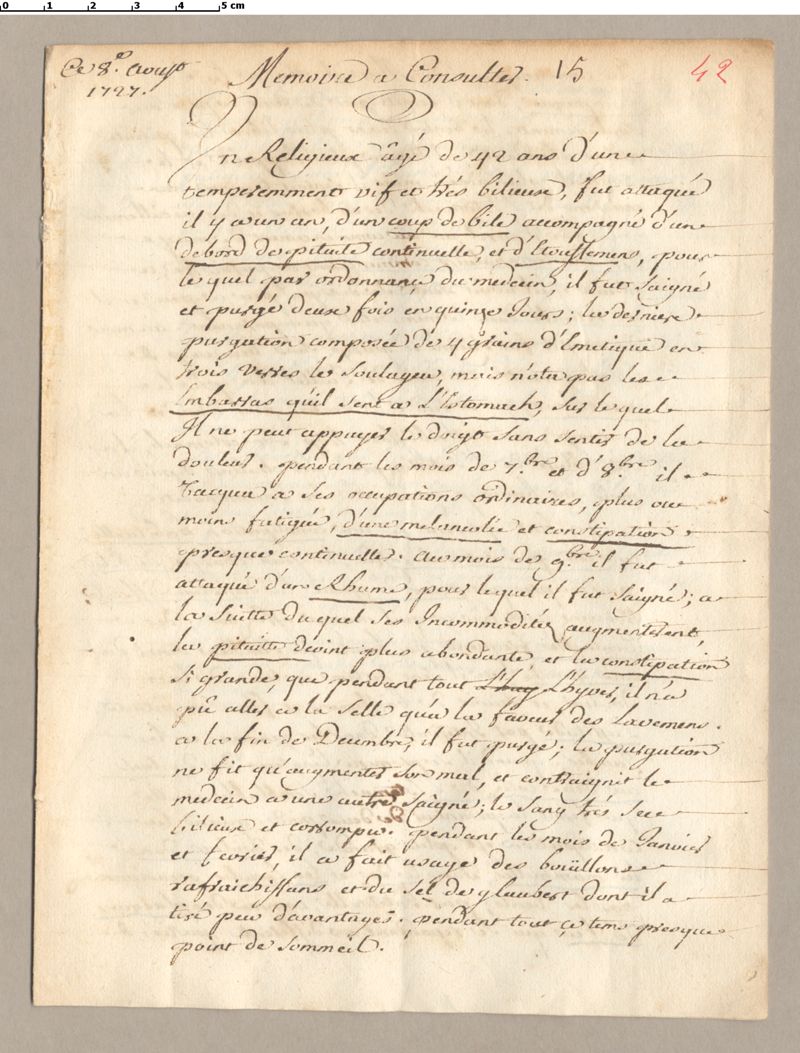 0 1 2 3 4 5 cm
Ce 8.e Aoust
1727.
Memoire a Consulter. 15
42
Un Religieux âgé de 42 ans d'un
temperemment vif et trés bilieux, fut attaqué
il y a un an, d'un coup de bile accompagné d'un
debord de pituite continuelle, et d'Etouffemens, pour
lequel par ordonnance du medecin, il fut Saigné
et purgé deux fois en quinze Jours; la derniere
purgation composée de 4 grains d'Emetique en
trois verres le Soulagea, mais n'ota pas les
Embarras qu'il sent a L'Estomach, Sur lequel
Il ne peut appuyer le doigt Sans Sentir de la
douleur. pendant les mois de 7.bre et d'8.bre il
vacqua a Ses occupations ordinaires, plus ou
moins fatigué, d'une melancolie et constipation
presque continuelle. Au mois de 9.bre il fut
attaqué d'un Rhume, pour lequel il fut Saigné; a
la Suitte duquel Ses Incommodités augmenterent,
la pituitte devint plus abondante, et la constipation
Si grande, que pendant tout L'hyver, il n'a
pû aller a la Selle qu'a la faveur des Lavemens.
a la fin de Decembre, il fut purgé; la purgation
ne fit qu'augmenter Son mal, et contraignit le
medecin a une autre Saigné; le Sang trés Sec
bilieux et corrompu. pendant les mois de Janvier
et fevrier, il a fait usage des boüillons
rafraichissans et du Sel de glaubert dont il a
tiré peu d'avantages. pendant tout ce tems presque
point de Sommeil.